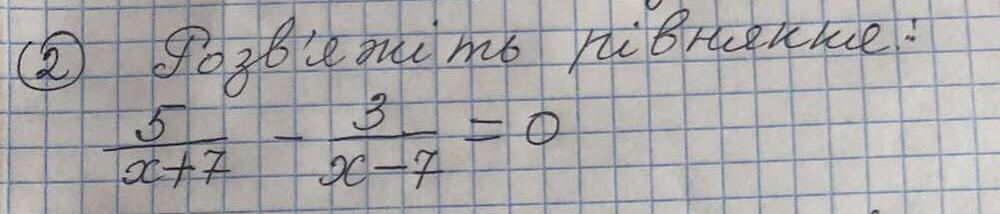 ② Розв'яжіть рівняння:
5/(x+7) - 3/(x-7) = 0